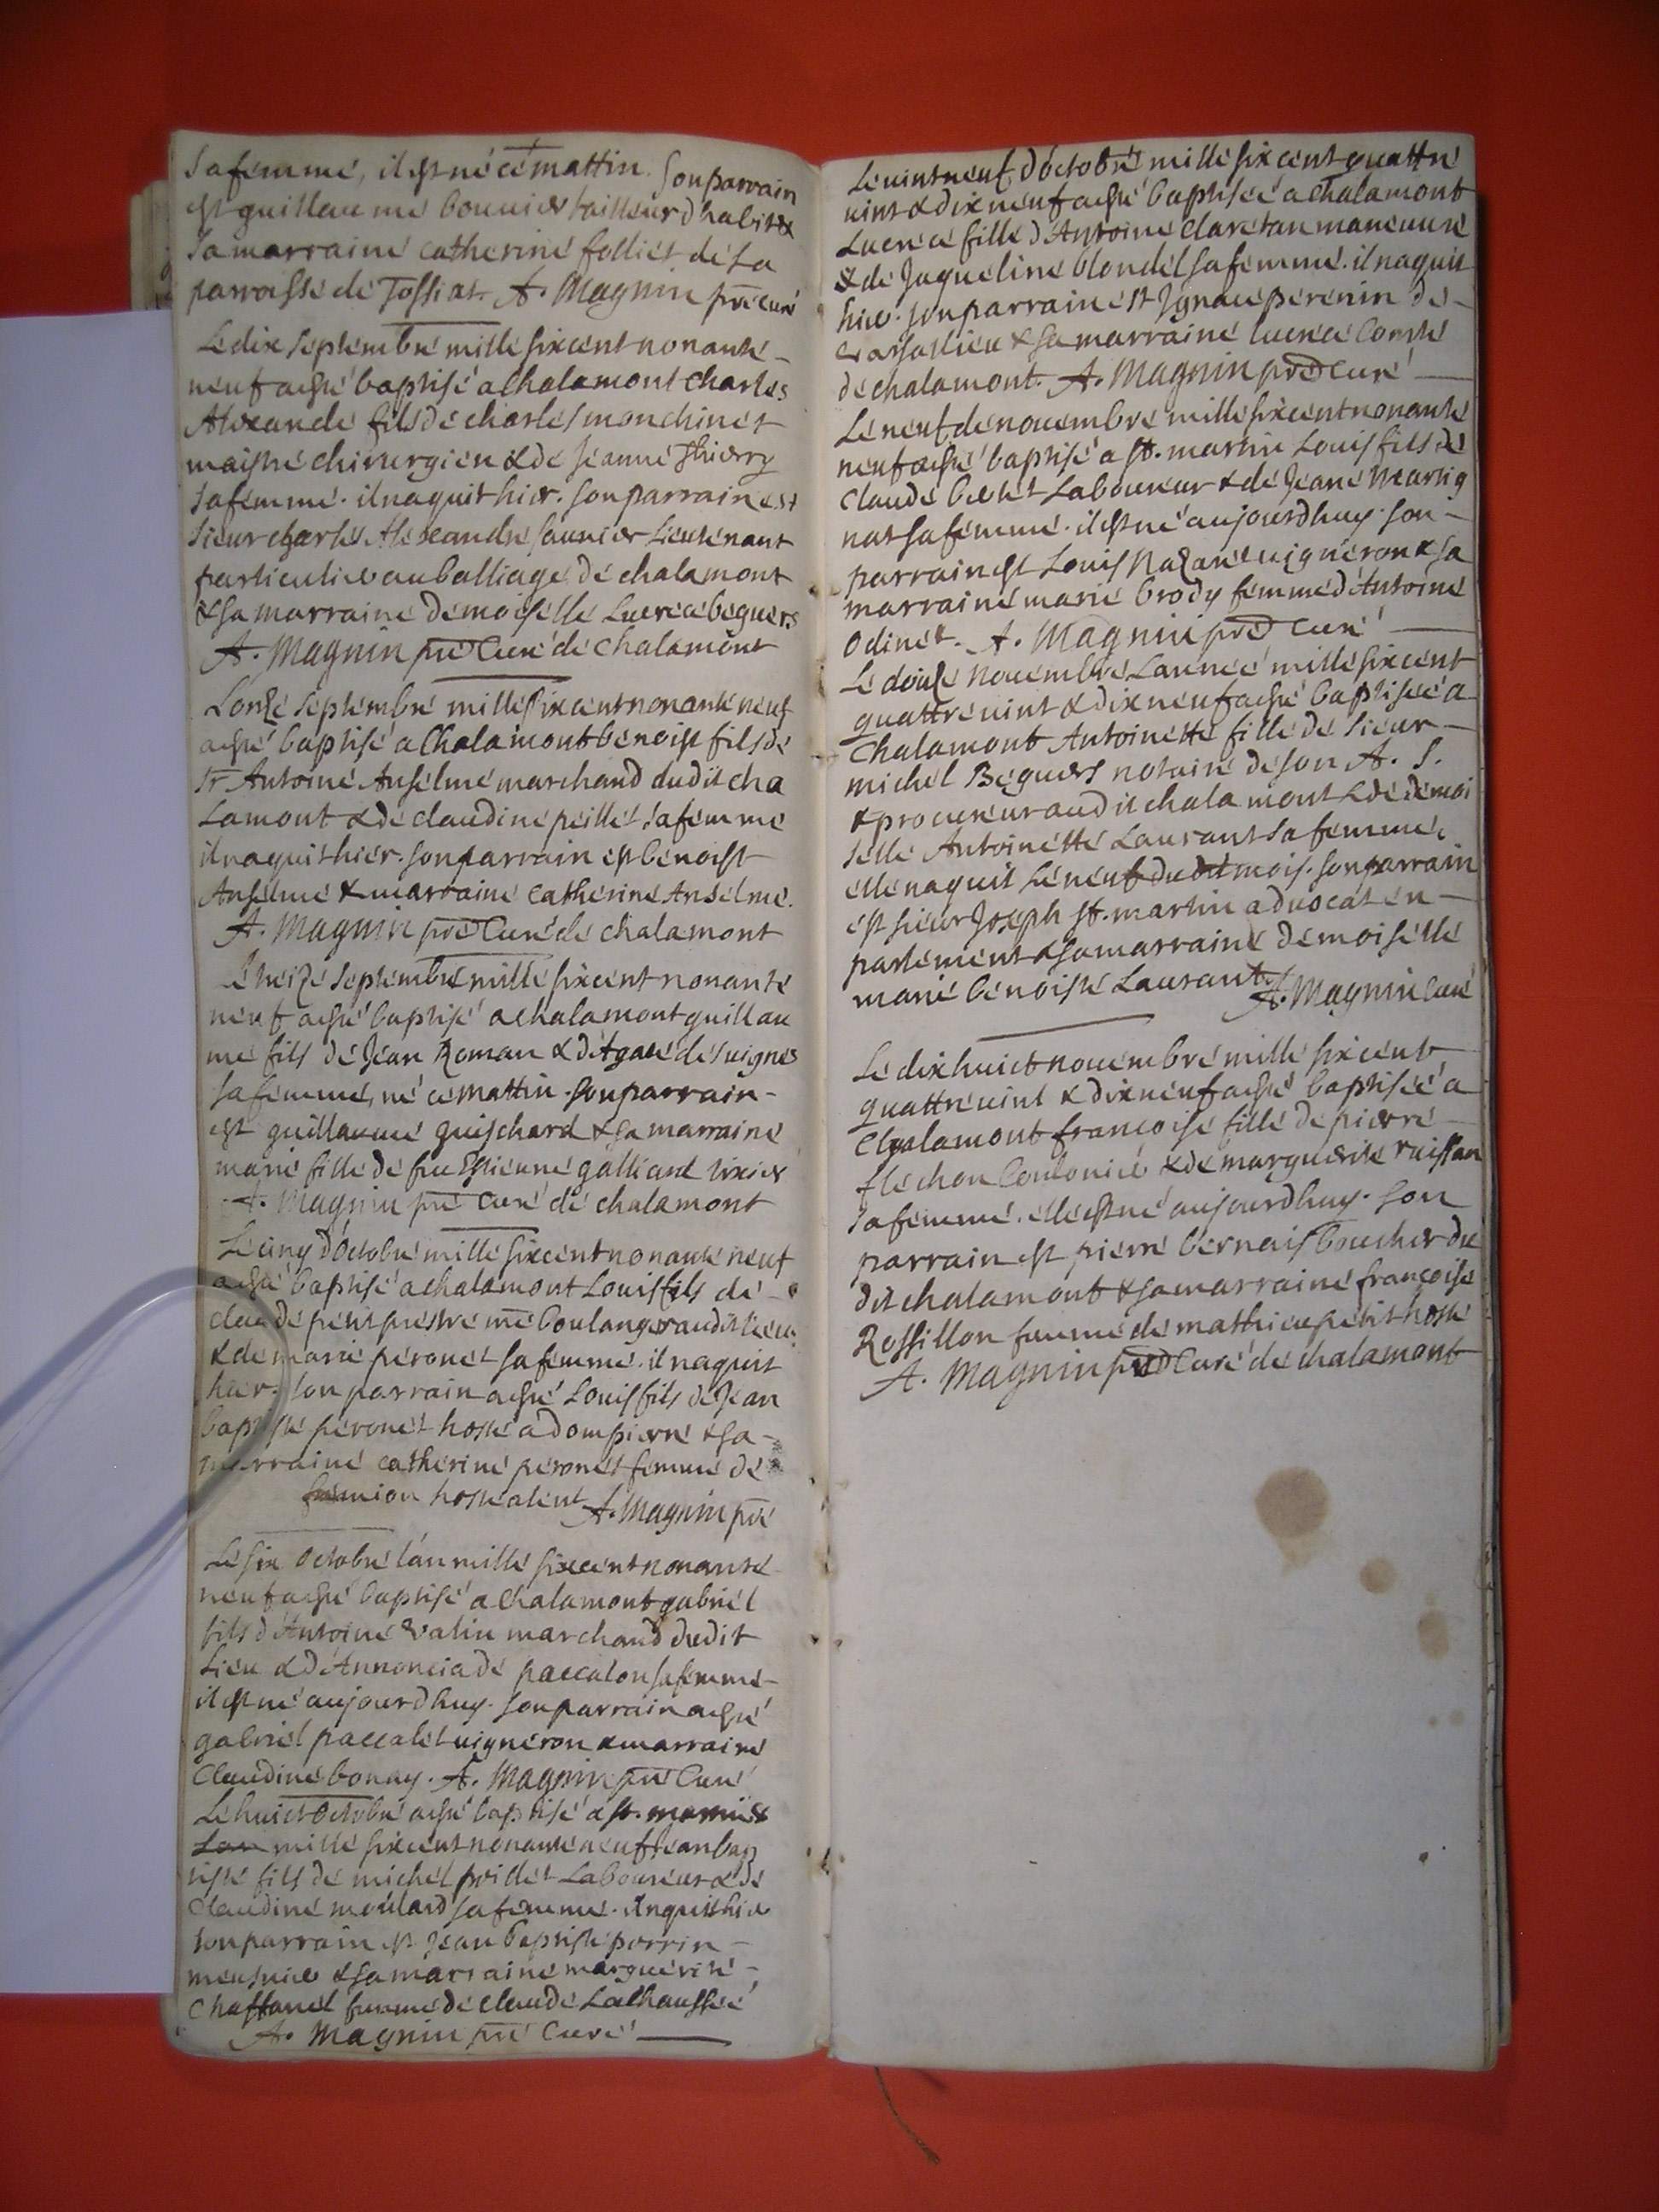 sa femme, il est né ce mattin. Son parrain
est guillaume bouuier tailleur d'habits &
sa marraine catherine folliet de la
parroisse de Tossiat. A. Magnin prê curé
Le dix septembre mille six cent nonante
neuf a esté baptisé a Chalamont Charles
Alexandre fils de charles monchinet
maistre chirurgien & de Jeanne Thierry
sa femme. il naquit hier. son parrain est
sieur charles Alexandre saunier Lieutenant
particulier au balliage de chalamont
& sa marraine demoiselle Lucrece beguers
A. Magnin prê Curé de Chalamont
L'onze septembre mille six cent nonante neuf
a esté baptisé a Chalamont benoist fils de
Sr Antoine Anselme marchand dudit cha
Lamont & de claudine peillet sa femme
il naquit hier. son parrain est benoist
Anselme & marraine catherine Anselme.
A. Magnin prê Curé de chalamont
Le treize septembre mille six cent nonante
neuf a esté baptisé a chalamont guillau
me fils de Jean Roman & d'Agate desuignes
sa femme, né ce mattin. son parrain
est guillaume guischard & sa marraine
marie fille de feu Estienne galliard tixier
A. Magnin prê Curé de chalamont
Le cinq d'octobre mille six cent nonante neuf
a esté baptisé a chalamont Louis fils de
claude petit prestre mê boulanger audit lieu
& de marie peronet sa femme. il naquit
hier. son parrain a esté Louis fils de Jean
baptiste peronet hoste a dompierre & sa
marraine catherine peronet femme de
hoste a lent A. Magnin prê
Le six octobre l'an mille six cent nonante
neuf a esté baptisé a Chalamont gabriel
fils d'Antoine Vatin marchand dudit
Lieu & d'Annonciade paccalon sa femme
il est né aujourdhuy. son parrain a esté
gabriel paccalet uigneron & marraine
Claudine bonay. A. Magnin prê Curé
Le huict Octobre a esté baptisé a st. martin
Lan mille six cent nonante neuf Jean bap
tiste fils de michel poillet Laboureur & de
Claudine moulard sa femme. il nquit hier
son parrain est Jean baptiste perrin
meusnier & sa marraine marguerite
Chaffanel femme de claude Lachaussée
A. Magnin prê Curé
Le uint neuf d'octobre mille six cent quattre
uint & dix neuf a esté baptisée a Chalamont
Lucrece fille d'Antoine claretan maneuure
& de Jaqueline blondel sa femme. il naquit
hier. son parrain est Ignace perenin de
& sa marraine lucrece Comte
de chalamont. A. Magnin prê Curé
Le neuf de nouembre mille six cent nonante
neuf a esté baptisé a St. martin Louis fils de
claude belet Laboureur & de Jeane Meartig
nat sa femme. il est né aujourdhuy. son
parrain est Louis Nazare uigneron & sa
marraine marie brody femme d'Antoine
Odinet. A. Magnin prê Curé
Le douze Nouembre L'année mille six cent
quattre uint & dix neuf a esté baptisée a
Chalamont Antoinette fille de sieur
michel Beguers notaire de son A. S.
& procureur audit chalamont & de demoi
selle Antoinette Laurant sa femme.
elle naquit Le neuf dudit mois. son parrain
est sieur Joseph St. martin aduocat en
parlement & sa marraine demoiselle
marie benoiste Laurant A. Magnin Curé
Le dix huict nouembre mille six cent
quattre uint & dix neuf a esté baptisée a
Chalamont francoise fille de pierre
flechon & de marguerite ruissan
sa femme. elle est né aujourdhuy. son
parrain est pierre bernais boucher du
dit chalamont & sa marraine françoise
Rossillon femme de mathieu petit hoste
A. Magnin prê Curé de chalamont